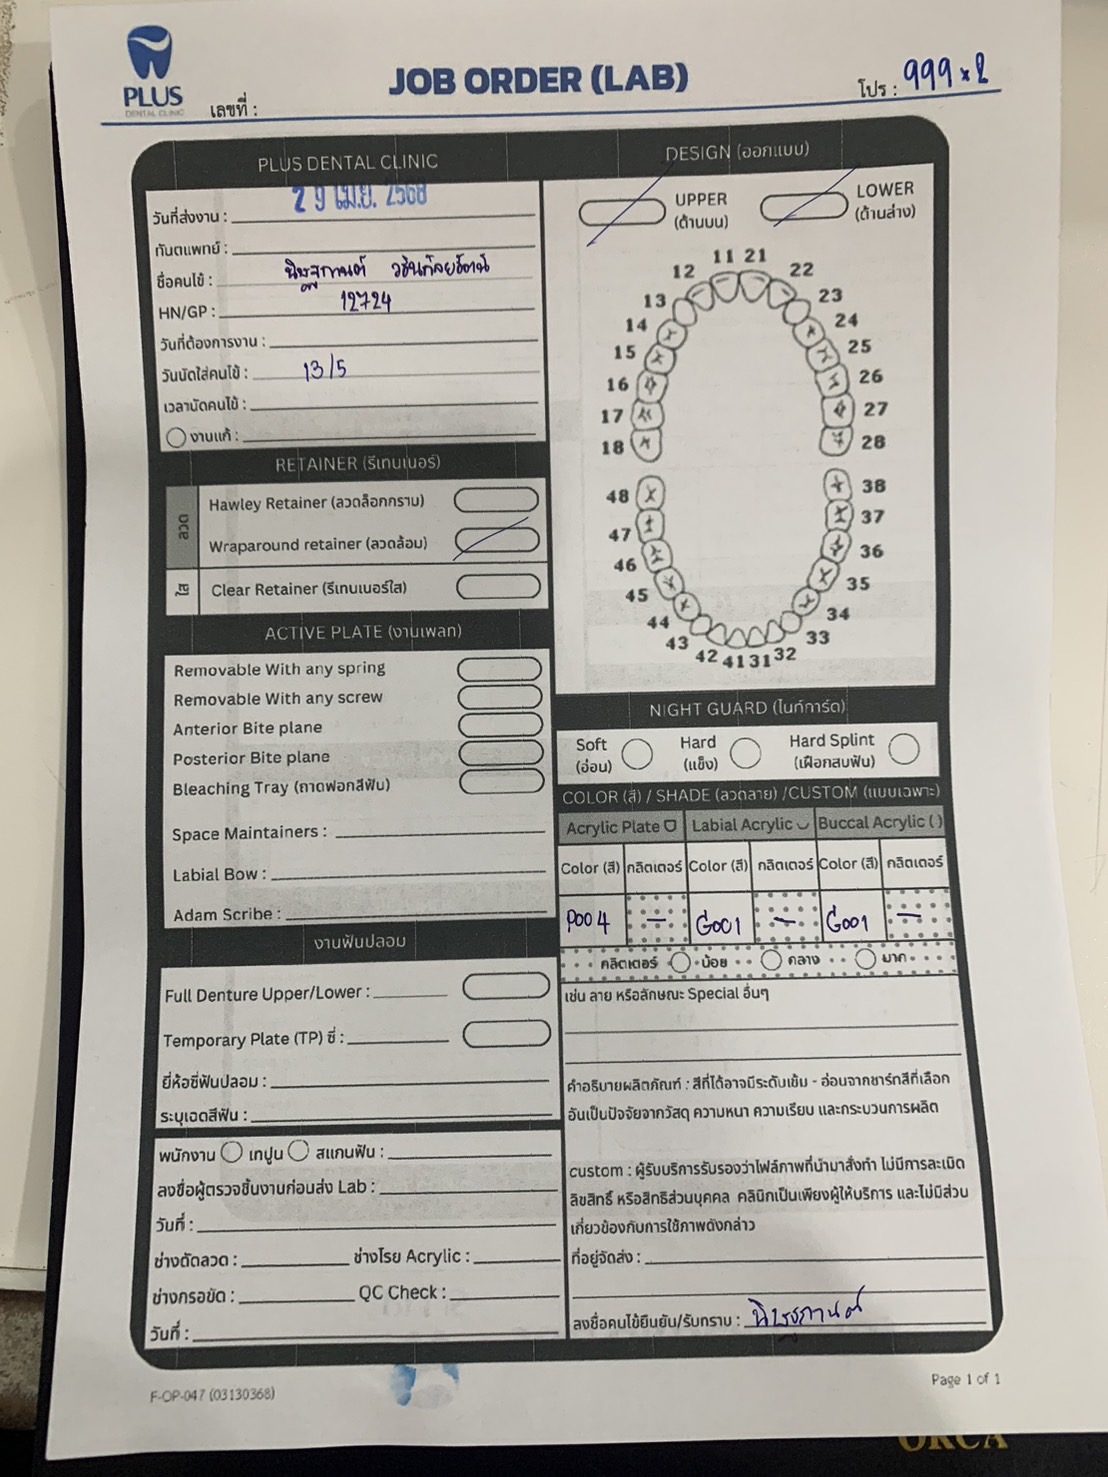 PLUS
DENTAL CLINIC
เลขที่ :
JOB ORDER (LAB)
โปร : 999 x 2
PLUS DENTAL CLINIC
วันที่ส่งงาน : 29 เม.ย. 2568
ทันตแพทย์ :
ชื่อคนไข้ :
HN/GP : 12724
วันที่ต้องการงาน :
วันนัดใส่คนไข้ : 13/5
เวลานัดคนไข้ :
งานแก้ :
RETAINER (รีเทนเนอร์)
ลวด
Hawley Retainer (ลวดล็อกกราม)
Wraparound retainer (ลวดล้อม)
ใส
Clear Retainer (รีเทนเนอร์ใส)
ACTIVE PLATE (งานเพลท)
Removable With any spring
Removable With any screw
Anterior Bite plane
Posterior Bite plane
Bleaching Tray (ถาดฟอกสีฟัน)
Space Maintainers :
Labial Bow :
Adam Scribe :
งานฟันปลอม
Full Denture Upper/Lower :
Temporary Plate (TP) ซี่ :
ยี่ห้อซี่ฟันปลอม :
ระบุเฉดสีฟัน :
พนักงาน เทปูน สแกนฟัน :
ลงชื่อผู้ตรวจชิ้นงานก่อนส่ง Lab :
วันที่ :
ช่างดัดลวด : ช่างโรย Acrylic :
ช่างกรอขัด : QC Check :
วันที่ :
DESIGN (ออกแบบ)
UPPER
(ด้านบน)
LOWER
(ด้านล่าง)
11 21
12 22
13 23
14 24
15 25
16 26
17 27
18 28
48 38
47 37
46 36
45 35
44 34
43 33
42 41 31 32
NIGHT GUARD (ไนท์การ์ด)
Soft
(อ่อน)
Hard
(แข็ง)
Hard Splint
(เฝือกสบฟัน)
COLOR (สี) / SHADE (ลวดลาย) /CUSTOM (แบบเฉพาะ)
Acrylic Plate Labial Acrylic Buccal Acrylic ( )
Color (สี) กลิตเตอร์ Color (สี) กลิตเตอร์ Color (สี) กลิตเตอร์
P004 — G001 — G001 —
กลิตเตอร์ น้อย กลาง มาก
เช่น ลาย หรือลักษณะ Special อื่นๆ
คำอธิบายผลิตภัณฑ์ : สีที่ได้อาจมีระดับเข้ม - อ่อนจากชาร์ทสีที่เลือก
อันเป็นปัจจัยจากวัสดุ ความหนา ความเรียบ และกระบวนการผลิต
custom : ผู้รับบริการรับรองว่าไฟล์ภาพที่นำมาสั่งทำ ไม่มีการละเมิด
ลิขสิทธิ์ หรือสิทธิส่วนบุคคล คลินิกเป็นเพียงผู้ให้บริการ และไม่มีส่วน
เกี่ยวข้องกับการใช้ภาพดังกล่าว
ที่อยู่จัดส่ง :
ลงชื่อคนไข้ยืนยัน/รับทราบ :
F-OP-047 (03130368)
Page 1 of 1
ORCA